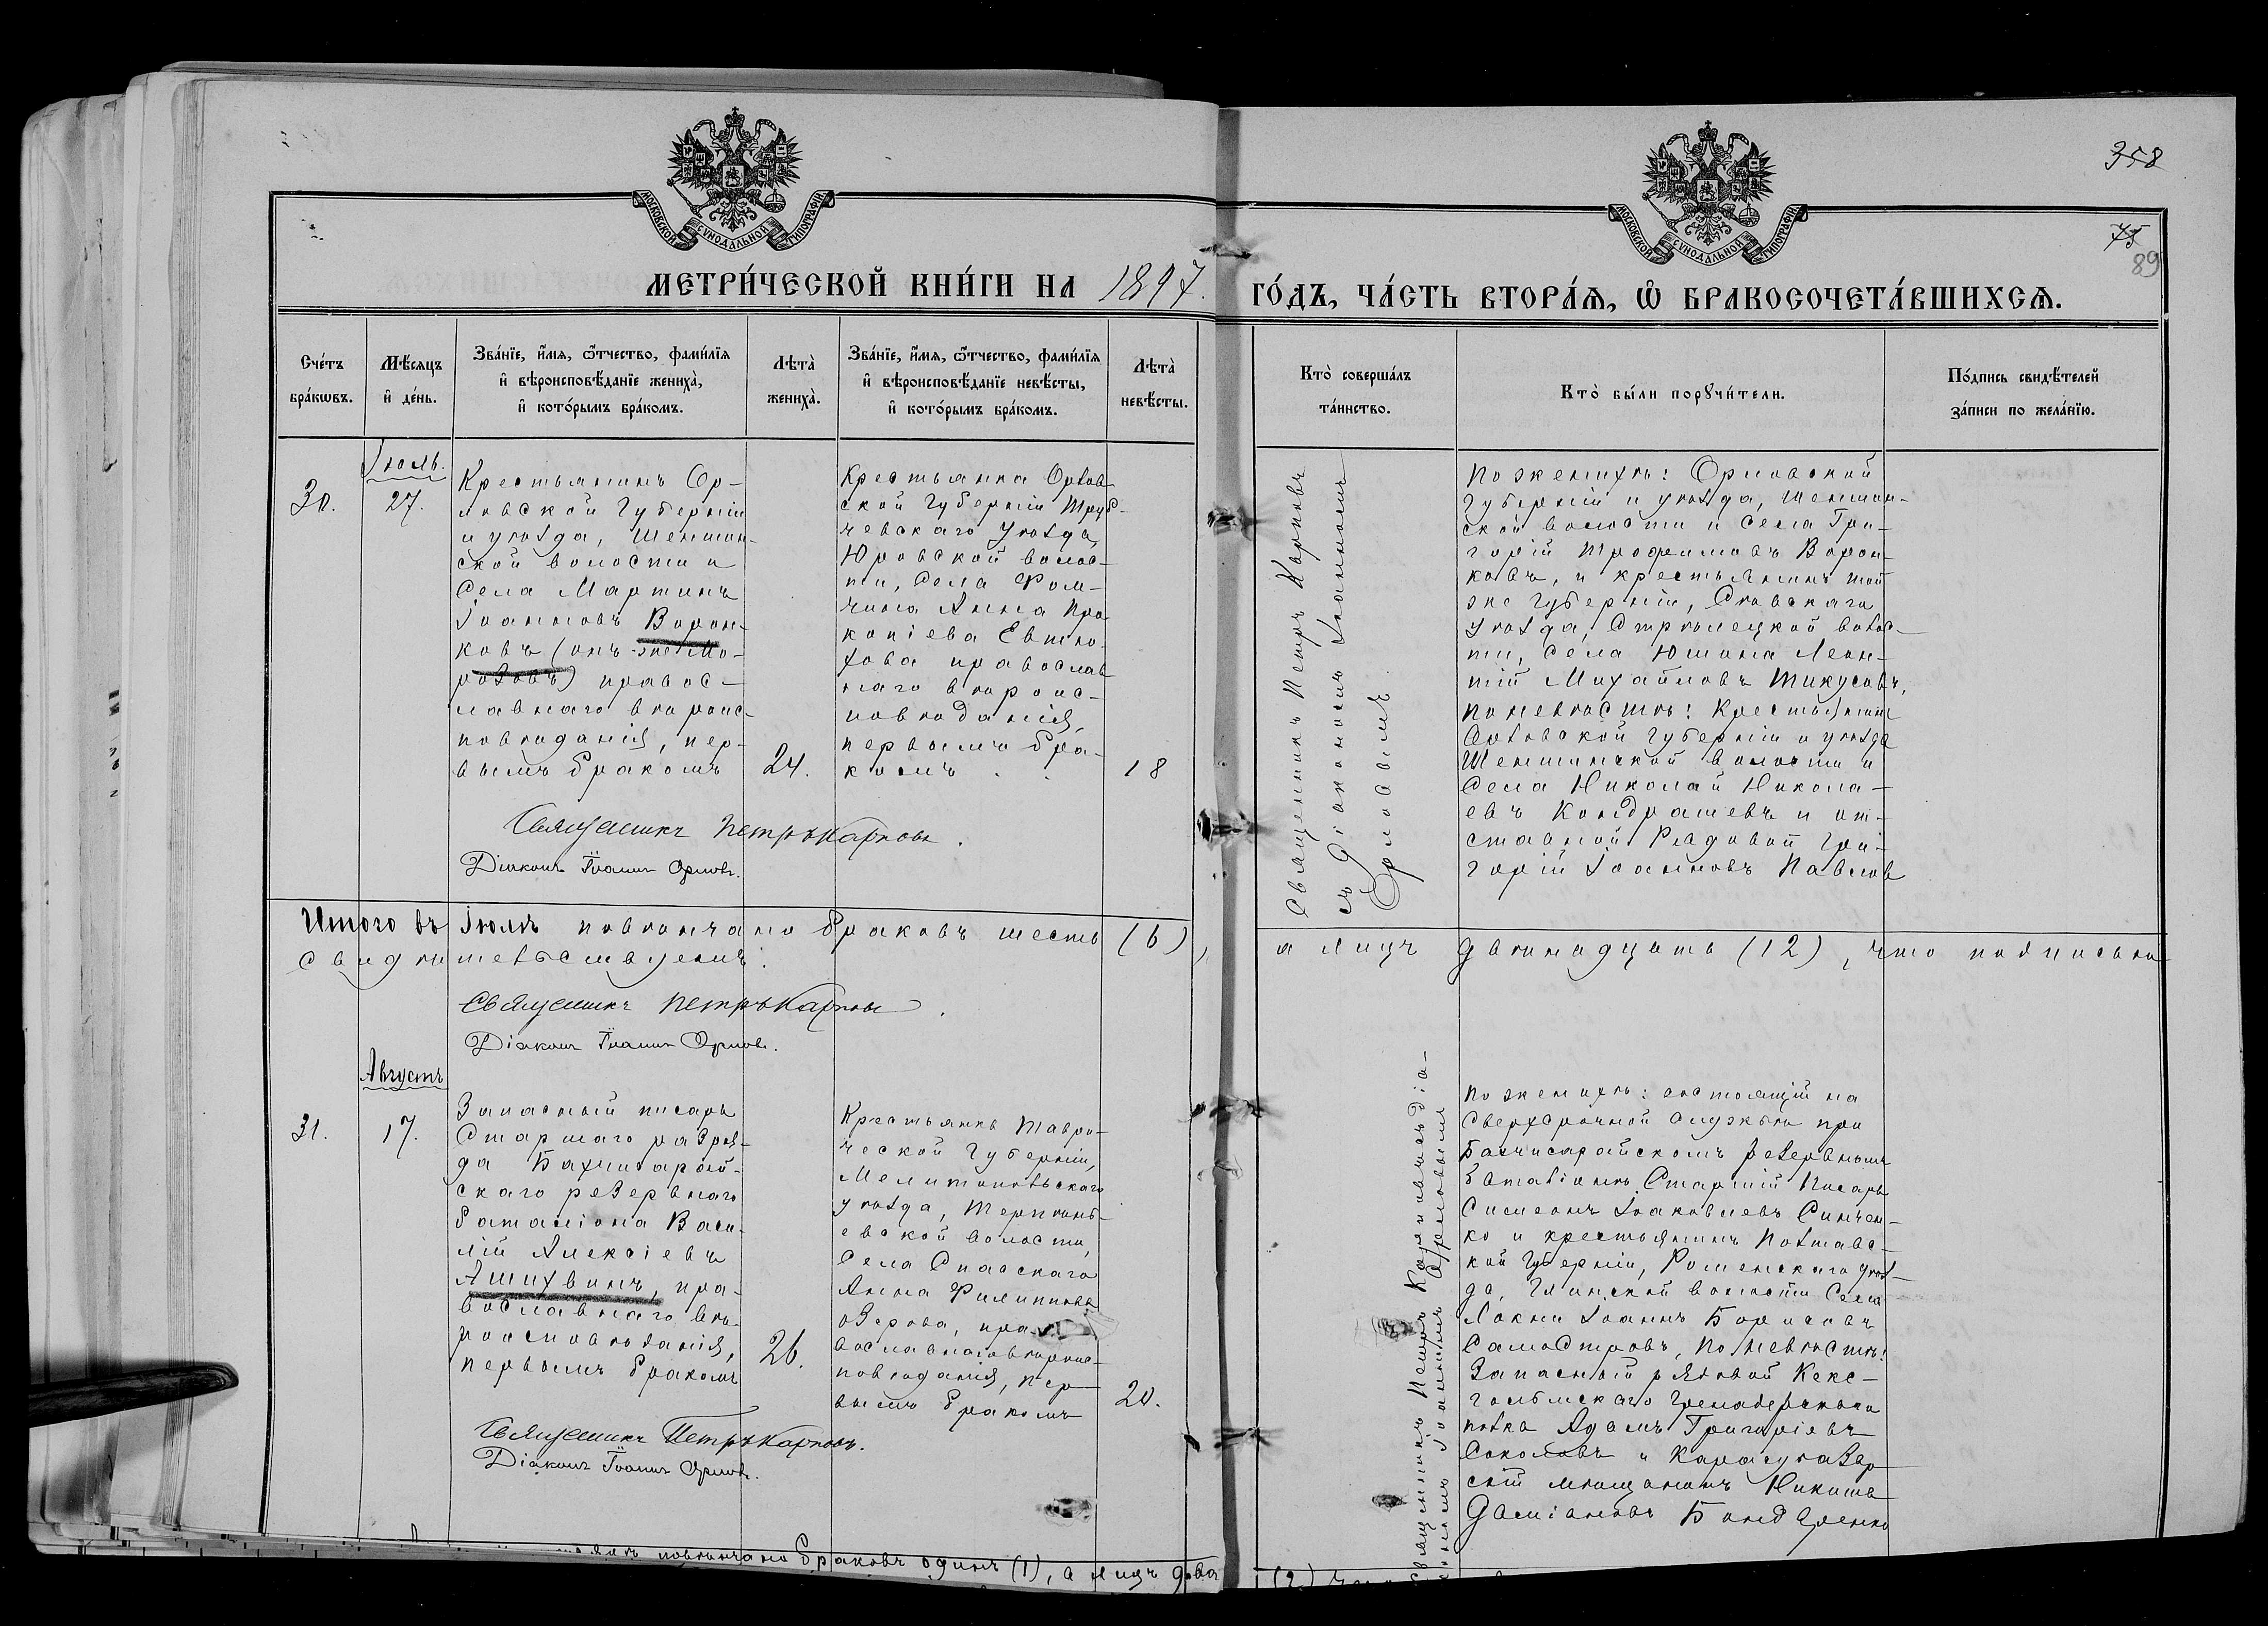 358
75
89
МОСКОВСКОЙ СУНОДАЛЬНОЙ ТИПОГРАФІИ
МОСКОВСКОЙ СУНОДАЛЬНОЙ ТИПОГРАФІИ
МЕТРИ́ЧЕСКОЙ КНИ́ГИ НА 1897.
ГО́ДЪ, ЧА́СТЬ ВТОРА́Я, Ѡ БРАКОСОЧЕТА́ВШИХСЯ.
Сче́тъ
бра́кѡвъ.
Мѣ́сяцъ
и де́нь.
Зва́нїе, и́мя, ѻ́тчество, фами́лїя
и вѣроисповѣ́данїе жениха̀,
и кото́рымъ бра́комъ.
Лѣта̀
жениха̀.
Зва́нїе, и́мя, ѻ́тчество, фами́лїя
и вѣроисповѣ́данїе невѣ́сты,
и кото́рымъ бра́комъ.
Лѣта̀
невѣ́сты.
Кто̀ соверша́лъ
та́инство.
Кто̀ бы́ли порꙋчи́тели.
По́дпись свидѣ́телей
за́писи по жела́нїю.
30.
Іюль.
27.
Крестьянинъ Ор-
ловской Губерніи
и уѣзда, Шеншин-
ской волости и
села Мартинъ
Іоанновъ Ворон-
ковъ (онъ-же Мо-
розовъ) правос-
лавнаго вѣроис-
повѣданія, пер-
вымъ бракомъ
24.
Крестьянка Орлов-
ской Губерніи Труб-
чевскаго уѣзда,
Юровской волос-
ти, села Фом-
чина Анна Про
копіева Евтю-
хова православ
наго вѣроис-
повѣданія,
первымъ бра-
комъ
18
Священникъ Петръ Карповъ
съ Діакономъ Іоанномъ
Орловымъ.
По женихѣ: Орловской
Губерніи и уѣзда, Шеншин-
ской волости и села Гри-
горій Трофимовъ Ворон-
ковъ, и крестьянинъ той
же Губерніи, Сѣвскаго
уѣзда, Стрѣлецкой волос-
ти, села Юшина Леон-
тій Михайловъ Тикусовъ,
по невѣстѣ: Крестьянинъ
Орловской Губерніи и уѣзда
Шеншинской волости и
села Николай Никола-
евъ Кондрашевъ и от-
ставной Рядовой Гри-
горій Іоанновъ Павлов
Священникъ Петръ Карповъ.
Діаконъ Іоаннъ Орловъ.
Итого въ Іюлѣ повѣнчано браковъ шесть (6),
а лицъ двѣнадцать (12), что подписью
свидѣтельствуемъ:
Священникъ Петръ Карповъ.
Діаконъ Іоаннъ Орловъ.
Августъ
31.
17.
Запасный писарь
Старшаго разря-
да Бахчисарай-
скаго резервнаго
баталіона Васи-
лій Алексіевъ
Ашихминъ, пра-
вославнаго вѣ-
роисповѣданія,
первымъ бракомъ
26.
Крестьянка Таври-
ческой Губерніи,
Мелитопольскаго
уѣзда, Терпѣнь-
евской волости,
села Спасскаго
Анна Филиппова
Озерова, пра-
вославнаго вѣроис-
повѣданія, пер-
вымъ бракомъ
20.
Священникъ Петръ Карповъ съ діа-
кономъ Іоанномъ Орловымъ
По женихѣ: состоящій на
Сверхсрочной службѣ при
Бахчисарайскомъ резервномъ
баталіонѣ Старшій Писарь
Симеонъ Іаковлевъ Синчен-
ко и крестьянинъ Полтавс-
кой Губерніи, Роменскаго уѣз-
да, Глинской волости Села
Локни Іоаннъ Борисовъ
Самостровъ, по невѣстѣ:
Запасный рядовой Кекс-
гольмскаго Гренадерскаго
полка Адамъ Григоріевъ
Соколовъ и Карасубазар
скій мѣщанинъ Никита
Даміановъ Бондаренко
Священникъ Петръ Карповъ.
Діаконъ Іоаннъ Орловъ.
повѣнчано браковъ одинъ (1), а лицъ два
(2)